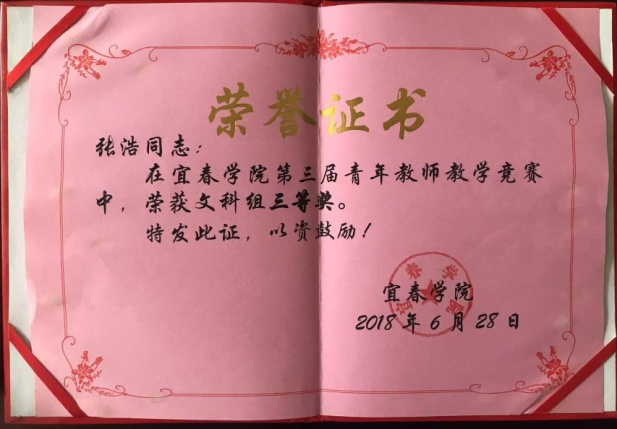 荣誉证书
张浩同志：
在宜春学院第三届青年教师教学竞赛
中，荣获文科组三等奖。
特发此证，以资鼓励！
宜春学院
2018年6月28日